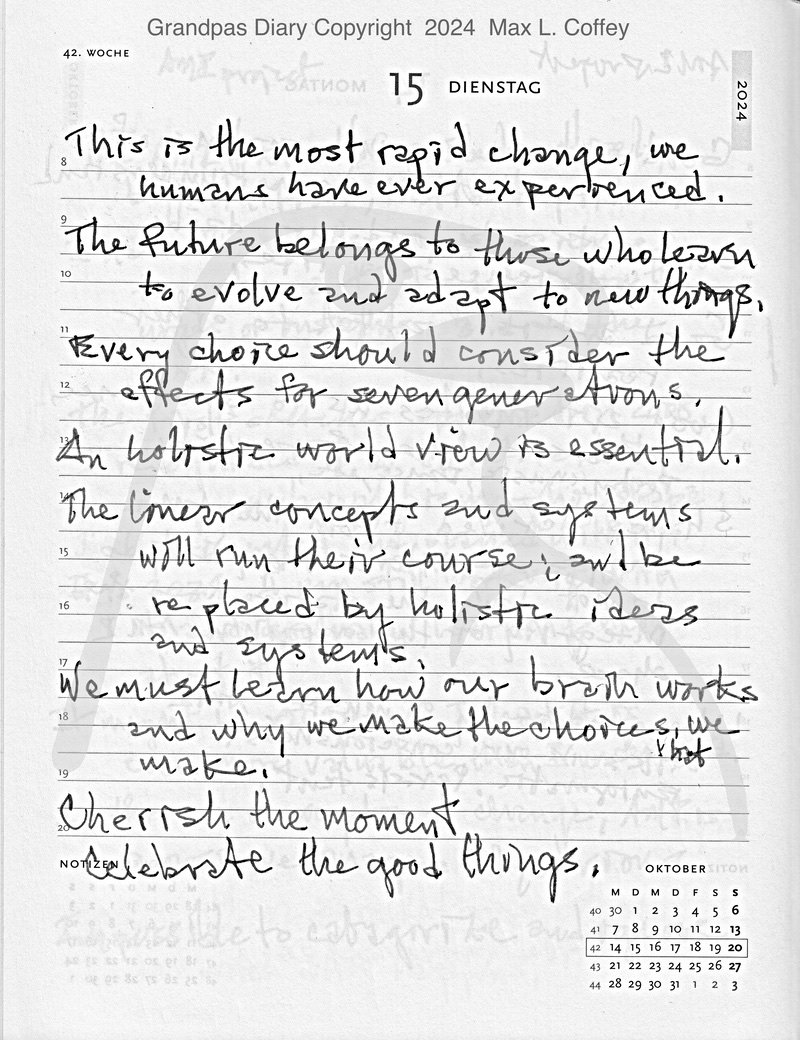 Grandpas Diary Copyright 2024 Max L. Coffey
42. WOCHE
15 DIENSTAG
2024
This is the most rapid change, we
8
humans have ever experienced.
9
The future belongs to those who learn
10
to evolve and adapt to new things.
11
Every choice should consider the
12
effects for seven generations.
13
An holistic world view is essential.
14
The linear concepts and systems
15
will run their course; and be
16
replaced by holistic ideas
and systems.
17
We must learn how our brain works
18
and why we make the choices, we
that
19
make.
Cherish the moment
20
NOTIZEN
Celebrate the good things.
OKTOBER
M D M D F S S
40 30 1 2 3 4 5 6
41 7 8 9 10 11 12 13
42 14 15 16 17 18 19 20
43 21 22 23 24 25 26 27
44 28 29 30 31 1 2 3